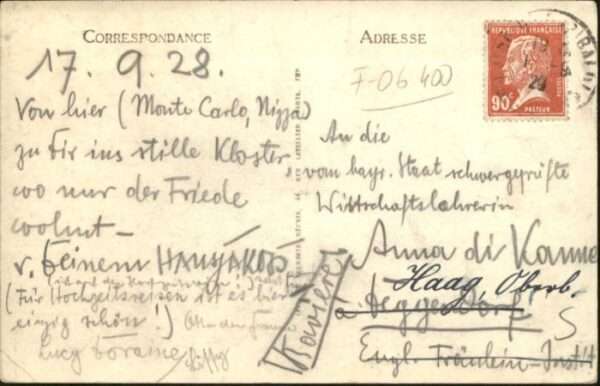 CORRESPONDANCE
ADRESSE
REPUBLIQUE FRANÇAISE
90c
PASTEUR
F-06 400
17. 9. 28.
Von hier (Monte Carlo, Nizza)
zu Dir ins stille Kloster,
wo nur der Friede
wohnt –
v. Deinem
(Für Hochzeitsreisen ist es hier
einzig schön!)
Lucy Doraine
An die
vom bayr. Staat schwergeprüfte
Wirtschaftslehrerin
Anna di
Haag, Oberb.
a Deggendorf
Engl. Fräulein-Instit
(Bavière)